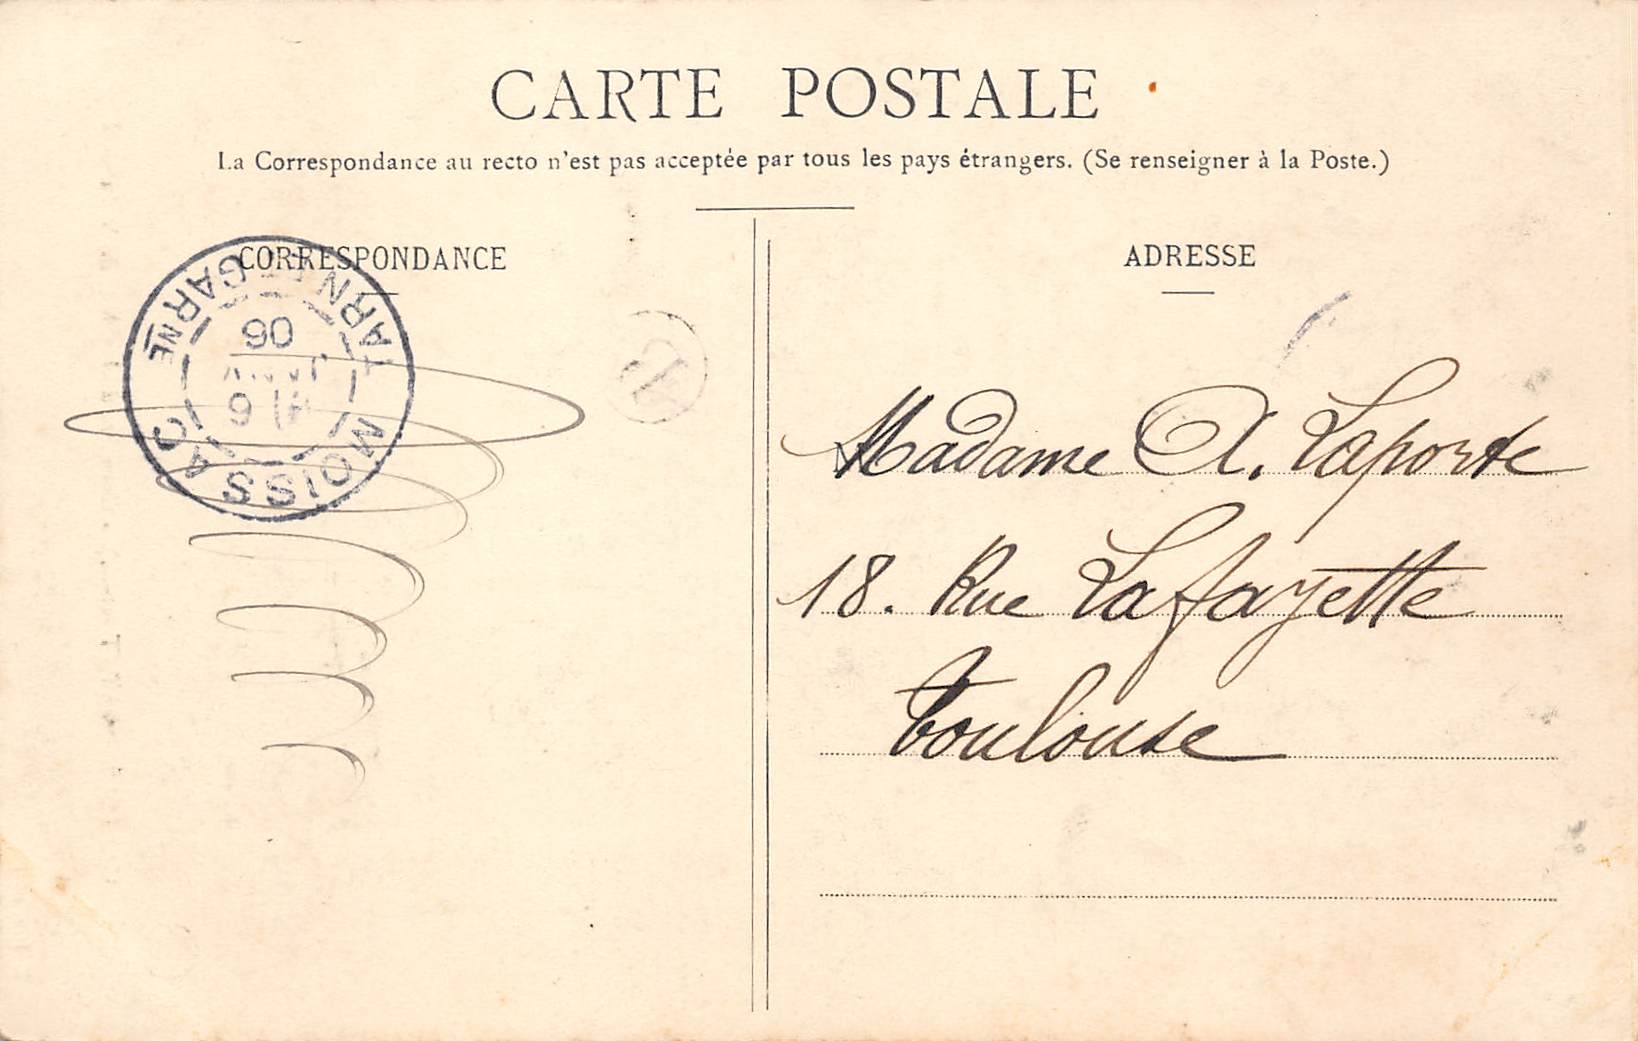 CARTE POSTALE
La Correspondance au recto n'est pas acceptée par tous les pays étrangers. (Se renseigner à la Poste.)
CORRESPONDANCE
MOISSAC
TARN-&-GARNE
06
ADRESSE
Madame A. Laporte
18. Rue Lafayette
Toulouse